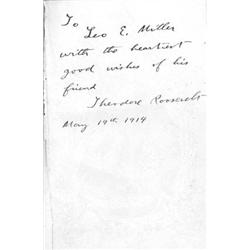 To
Leo E. Miller
with the heartiest
good wishes of his
friend
Theodore Roosevelt
May 19th 1914